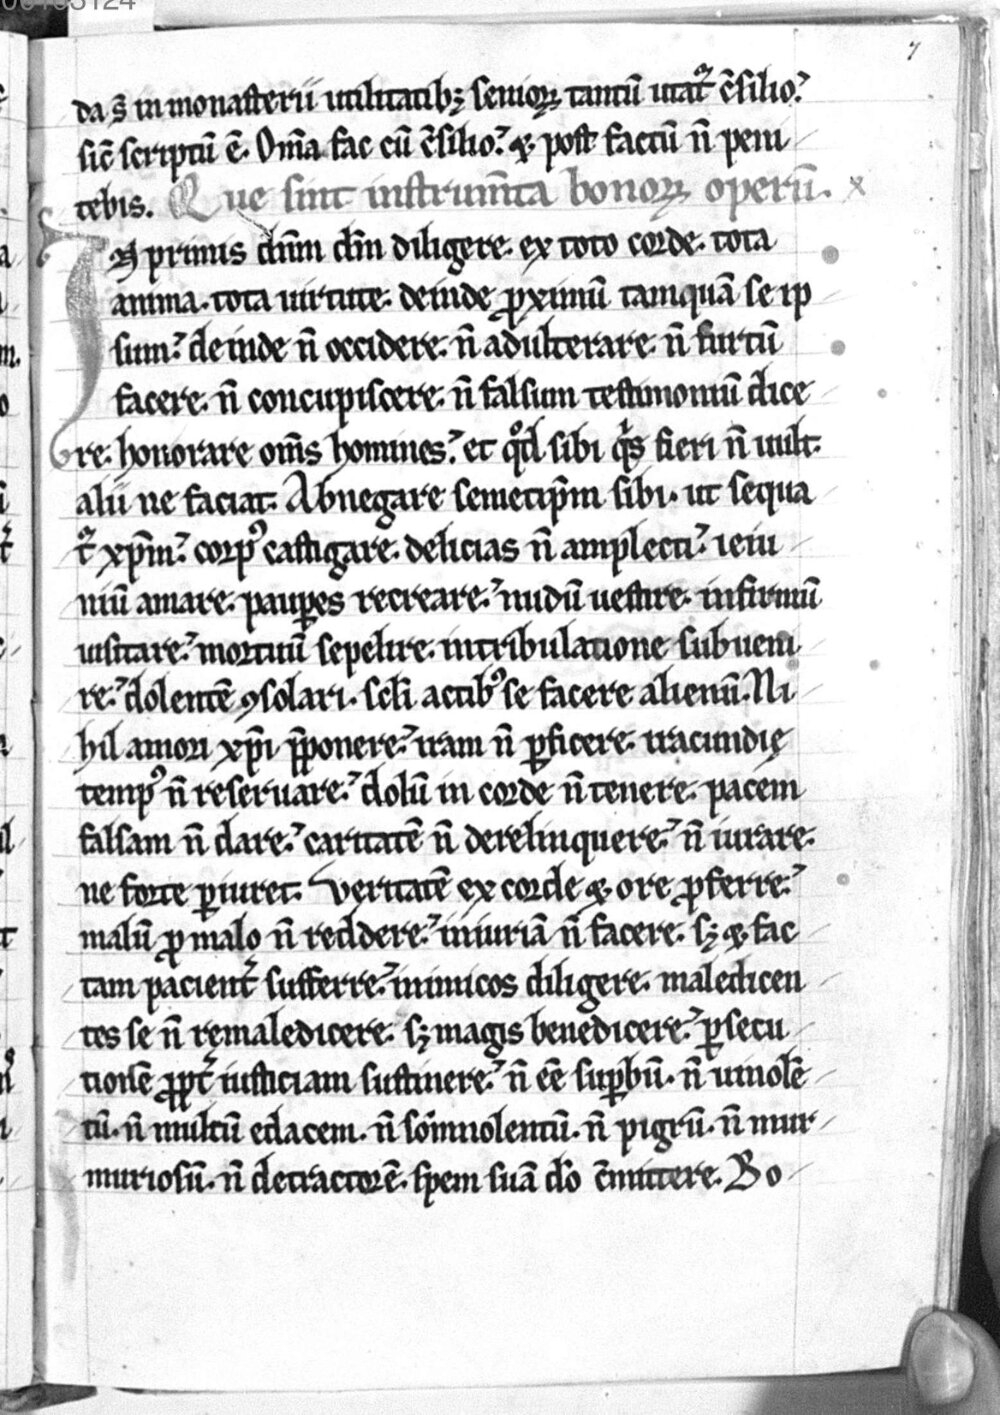 7
da s̄ in monasterii utilitatibꝫ senioꝝ tantū utat᷑ c̄silio.
sic̄ scriptū ē. Om̄a fac cū c̄silio. ⁊ post factū n̄ peni
tebis. Que sint instrum̄ta bonoꝝ operū. x
IN primis dn̄m dm̄ diligere. ex toto corde. tota
anima. tota uirtute. deinde ꝓximū tamquā se ip
sum. deinde n̄ occidere. n̄ adulterare. n̄ furtū
facere. n̄ concupiscere. n̄ falsum testimoniū dice
re. honorare om̄s homines. et qͦd sibi qͥs fieri n̄ uult.
alii ne faciat. Abnegare semetip̄m sibi. ut sequa
t᷑ xp̄m. corpꝰ castigare. delicias n̄ amplecti. ieiu
niū amare. pauꝑes recreare. nudū uestire. infirmū
uisitare. mortuū sepelire. in tribulatione subueni
re. dolentē ꝯsolari. scl̄i actibꝰ se facere alienū. Ni
hil amori xp̄i p̄ponere. iram n̄ ꝑficere. iracundię
tempꝰ n̄ reseruare. dolū in corde n̄ tenere. pacem
falsam n̄ dare. caritatē n̄ derelinquere. n̄ iurare.
ne forte ꝑiuret. Veritatē ex corde ⁊ ore ꝓferre.
malū ꝓ malo n̄ reddere. iniuriā n̄ facere. sꝫ ⁊ fac
tam pacient᷑ sufferre. inimicos diligere. maledicen
tes se n̄ remaledicere. sꝫ magis benedicere. ꝑsecu
tionē ꝓpt᷑ iusticiam sustinere. n̄ ēē suꝑbū. n̄ uinolē
tū. n̄ multū edacem. n̄ somnolentū. n̄ pigrū. n̄ mur
muriosū. n̄ detractorē. spem suā do̅ c̄mittere. Bo